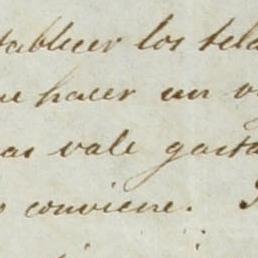 tablecer los tela
ue hacer un v
as vale gasta
o conviene.